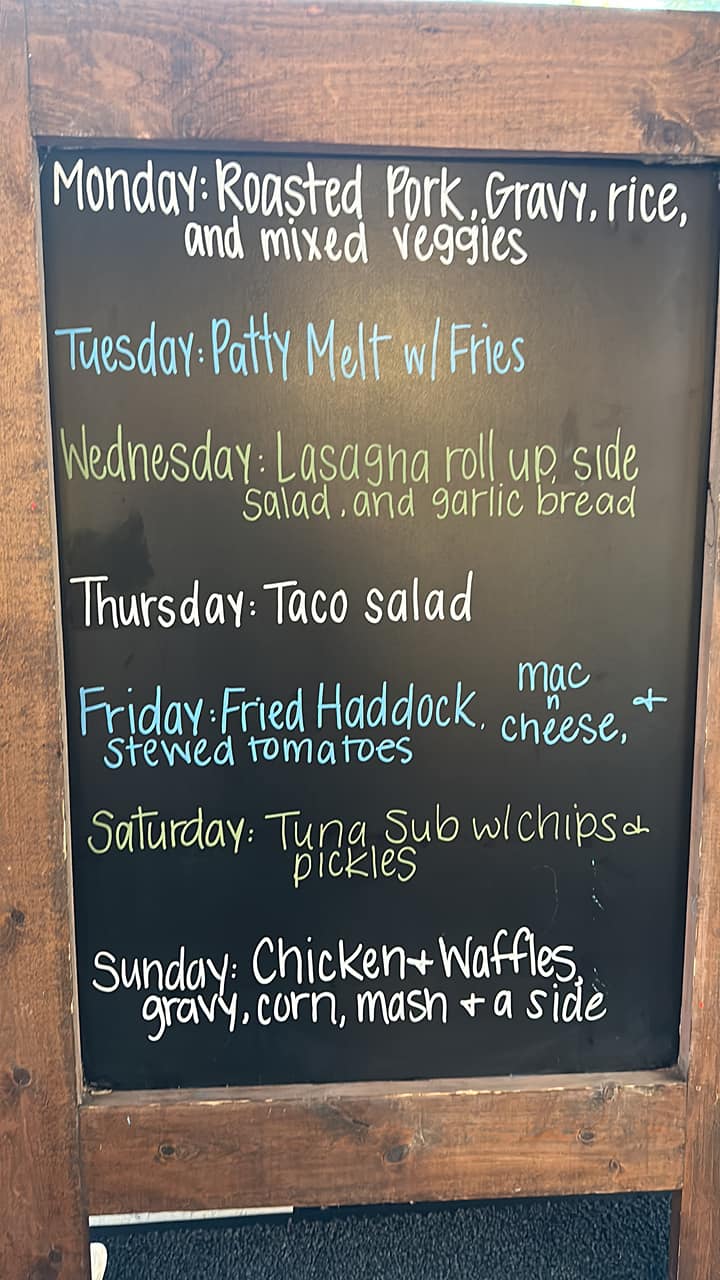 Monday: Roasted Pork, Gravy, rice,
and mixed veggies
Tuesday: Patty Melt w/ Fries
Wednesday: Lasagna roll up, side
salad, and garlic bread
Thursday: Taco salad
Friday: Fried Haddock, mac n cheese, +
stewed tomatoes
Saturday: Tuna Sub w/ chips +
pickles
Sunday: Chicken + Waffles,
gravy, corn, mash + a side